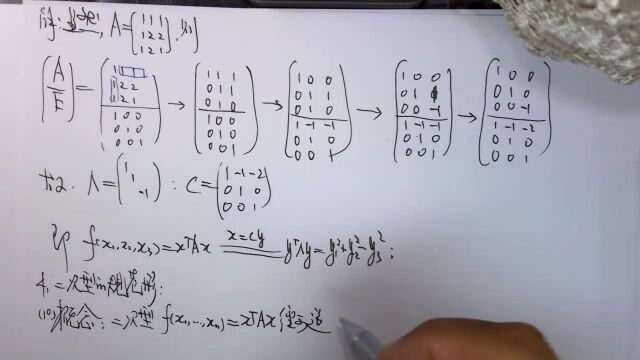 A = [1 1 1; 1 2 2; 1 2 1], 则
(A/E) = (1 1 1; 1 2 2; 1 2 1; 1 0 0; 0 1 0; 0 0 1) → (1 1 1; 0 1 1; 0 1 0; 1 0 0; 0 1 0; 0 0 1) → (1 0 0; 0 1 1; 0 1 0; 1 -1 -1; 0 1 0; 0 0 1) → (1 0 0; 0 1; 0 0 -1; 1 -1 -1; 0 1 0; 0 0 1) → (1 0 0; 0 1 0; 0 0 -1; 1 -1 -2; 0 1 0; 0 0 1)
Λ = (1 1 -1) : C = (1 -1 -2; 0 1 0; 0 0 1)
即 f(x₁,x₂,x₃) = xᵀAx x=Cy yᵀΛy = y₁²+y₂²-y₃² ;
4. 二次型的规范形:
(1°) 概念: 二次型 f(x₁,…,xₙ) = xᵀAx